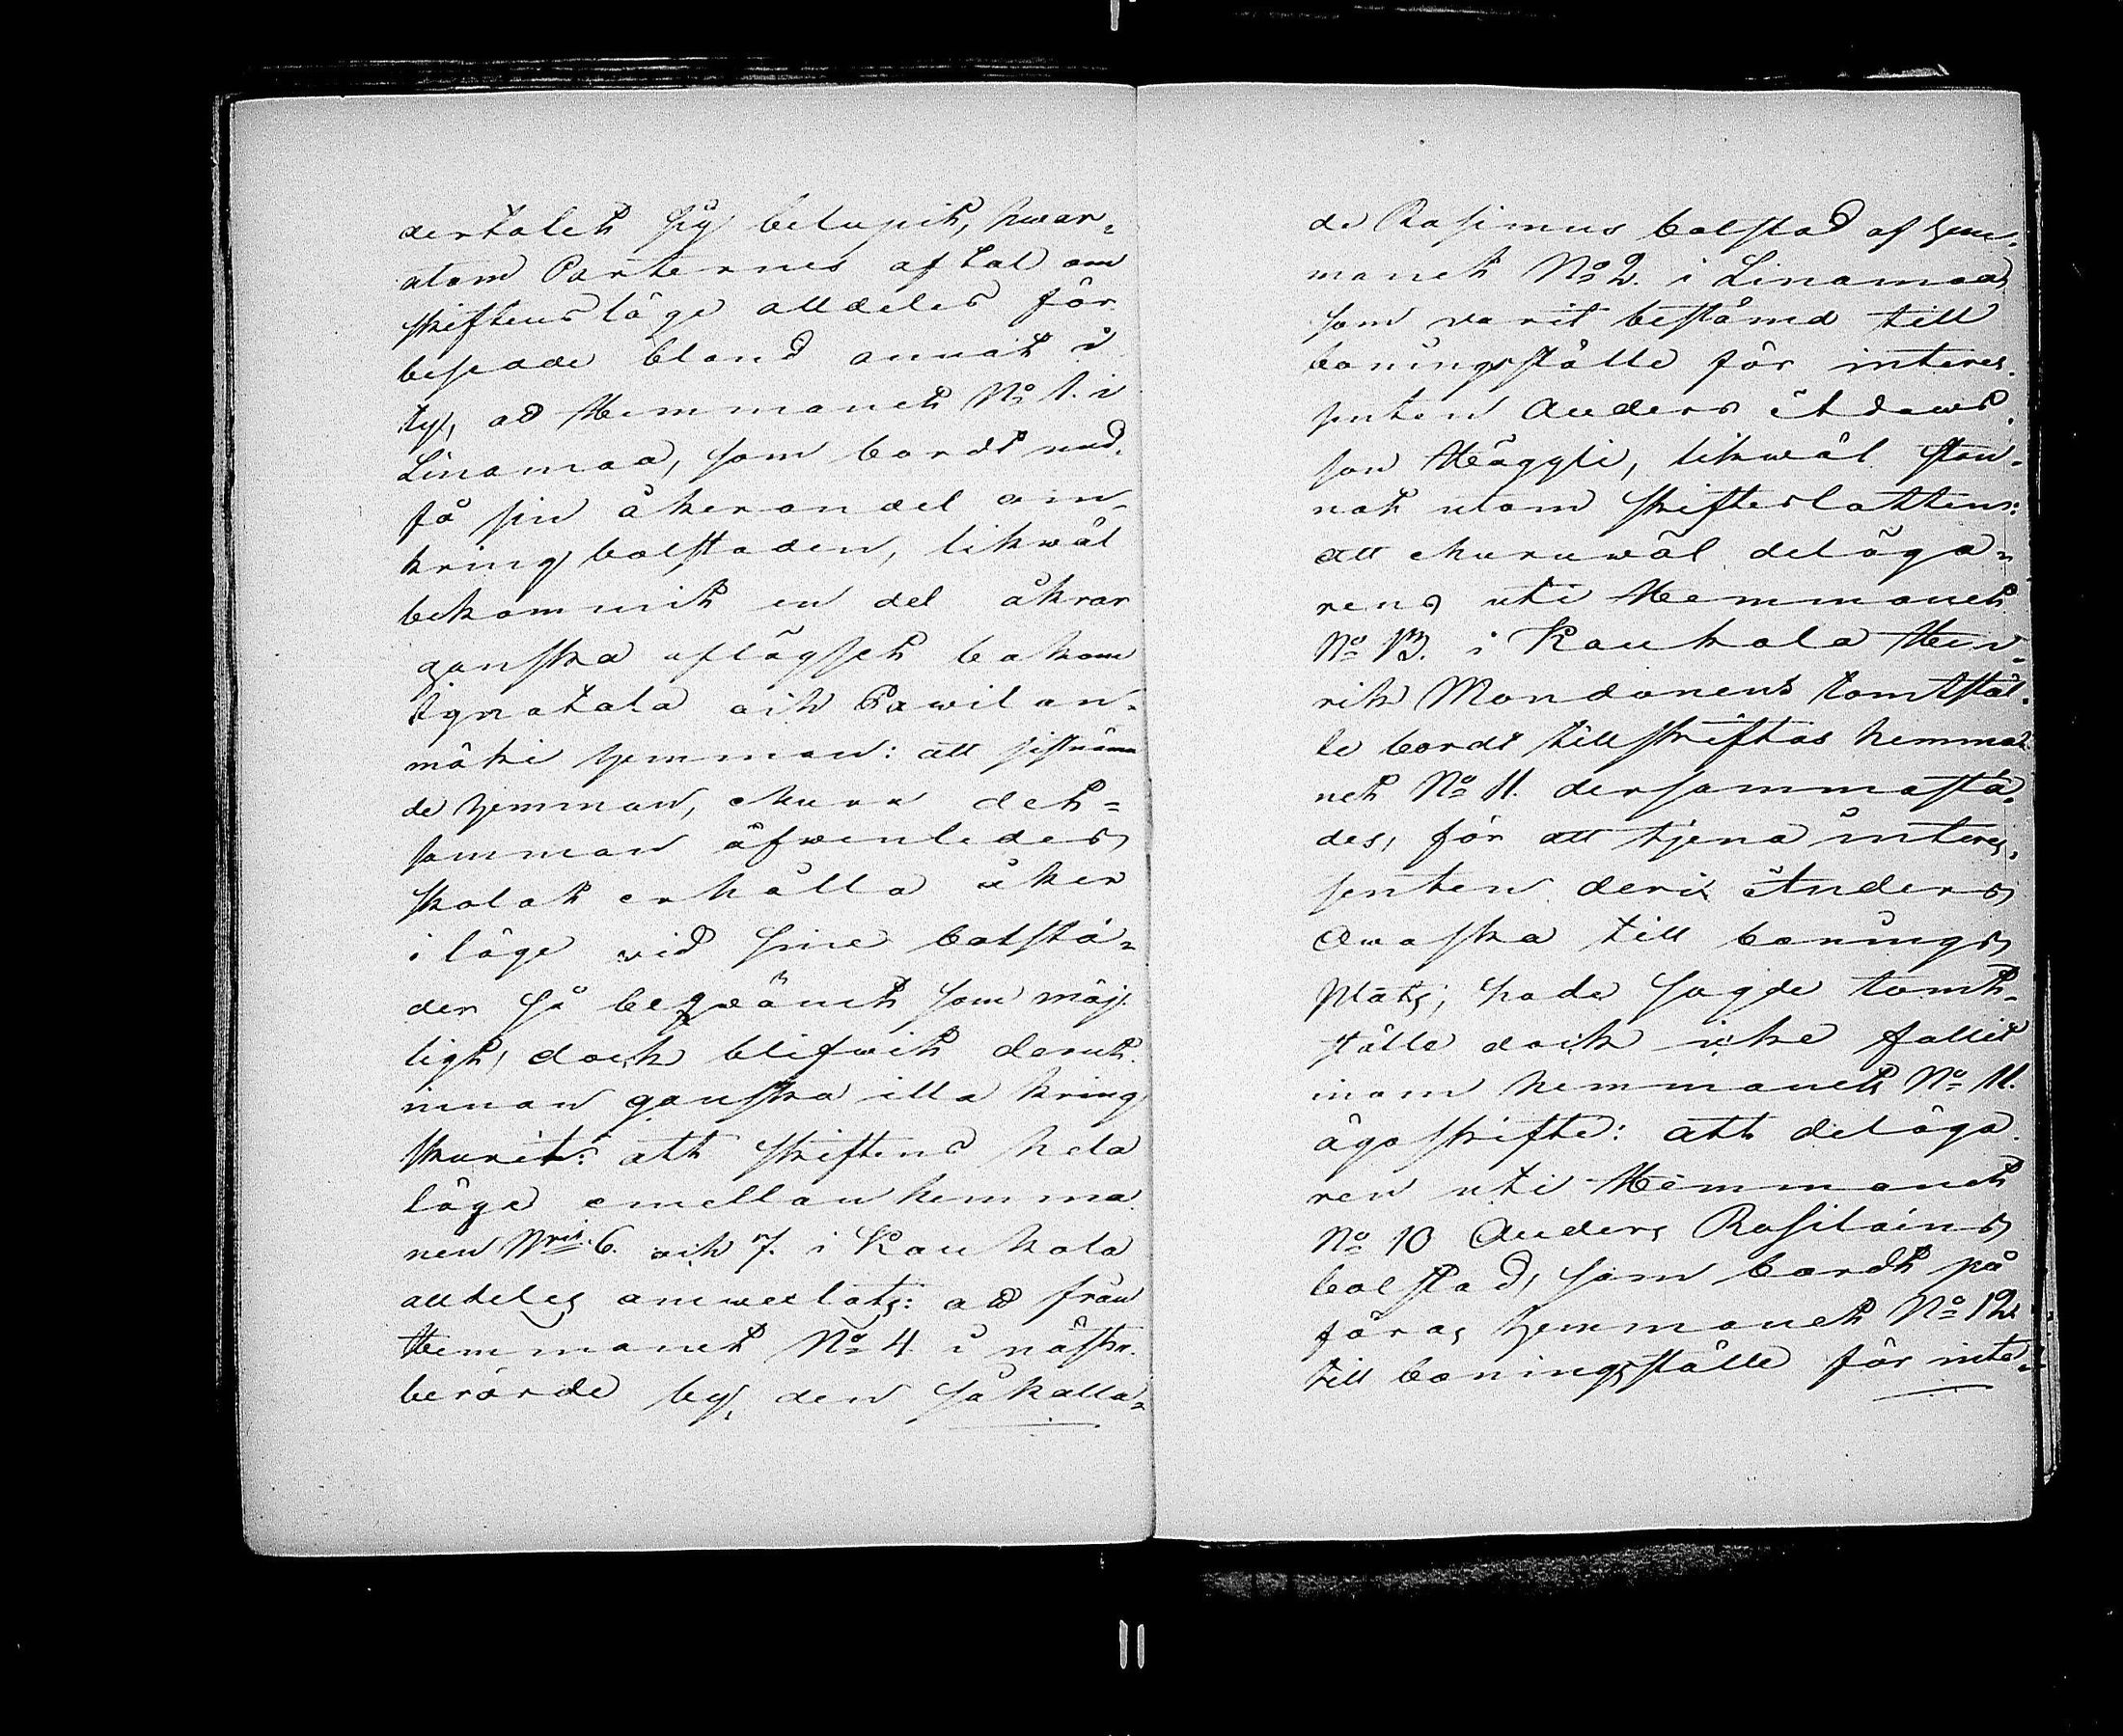 dertalet sig belupit, hwar-
utom Parternes aftal om
skiftens läge alldeles för
beseade bland annat i
ty, att Hemmanet No 1. i
Linamaa, som bordt und-
få sin åkerandel om-
kring bolstaden, likwäl
bekommit en del åkrar
ganska aflägset bakom
Ignatala och Pawilan-
mäki hemman: att sistnämn
de hemman, ehuru det-
samman äfwenledes
skolat erhålla åker
i läge wid sine bolstä-
der så beqwämt som möj-
ligt, dock blifwit derut-
innan ganska illa kring
skurit: att skiftens hela
läge emellan hemma
nen Nris 6. och 7. i Kaukola
alldeles omwexlats: att från
Hemmanet No 4 i nästn.
berörde by, den såkalla-
de Rasimus bolstad af hem-
manet No 2. i Linamaa,
som varit bestämd till
boningsställe för interes-
senten Anders Adams-
son Häggli, likwäl stan-
nat utom skifteslotten:
att ehuruwäl delöga-
rens uti Hemmanet
No 13. i Kaukola Hen-
rik Mondonens tomtstäl-
le bordt tillskiftas hemma
net No 11. dersammastä-
des, för att tjena interes-
senten deri Anders
Awaska till bonings
plats, hade sagde tomt-
ställe dock icke fallit
inom hemmanets No 11.
ägoskifte: att delöga
ren uti Hemmanet
No 10 Anders Rasilains
bolstad, som bordt på
föras hemmanet No 12
till boningsställe för inte-